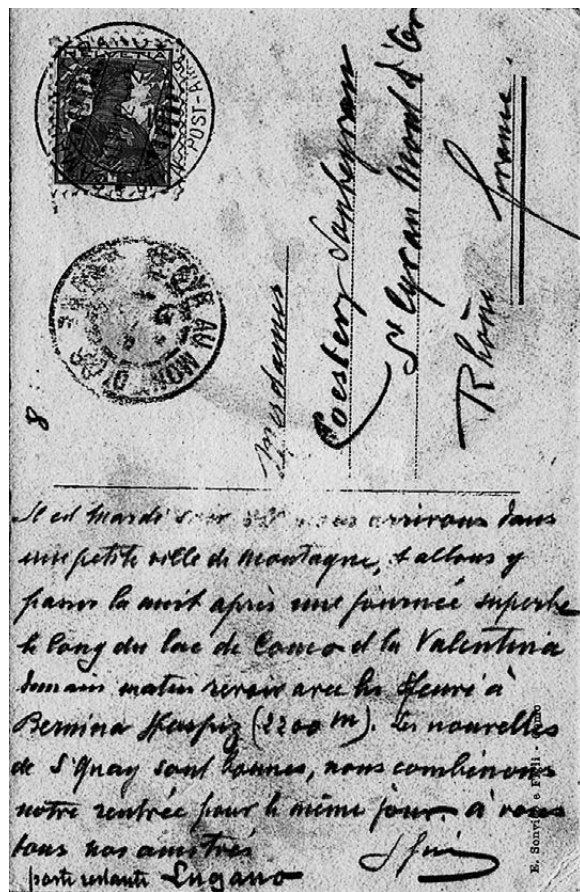 HELVETIA
POST-
AU MONT D'OR
8
Mesdames
St Cyr au Mont d'Or
Rhône
France.
Il est mardi soir nous arrivons dans
une petite ville de montagne, & allons y
passer la nuit après une journée superbe
le long du lac de Como et la Valentina
demain matin revoir avec les Henri à
Bernina Hospiz (2200 m). Les nouvelles
de St Quay sont bonnes, nous combinons
notre rentrée pour le même jour. à vous
tous nos amitiés
poste restante Lugano
E. Sonvico e F - Como